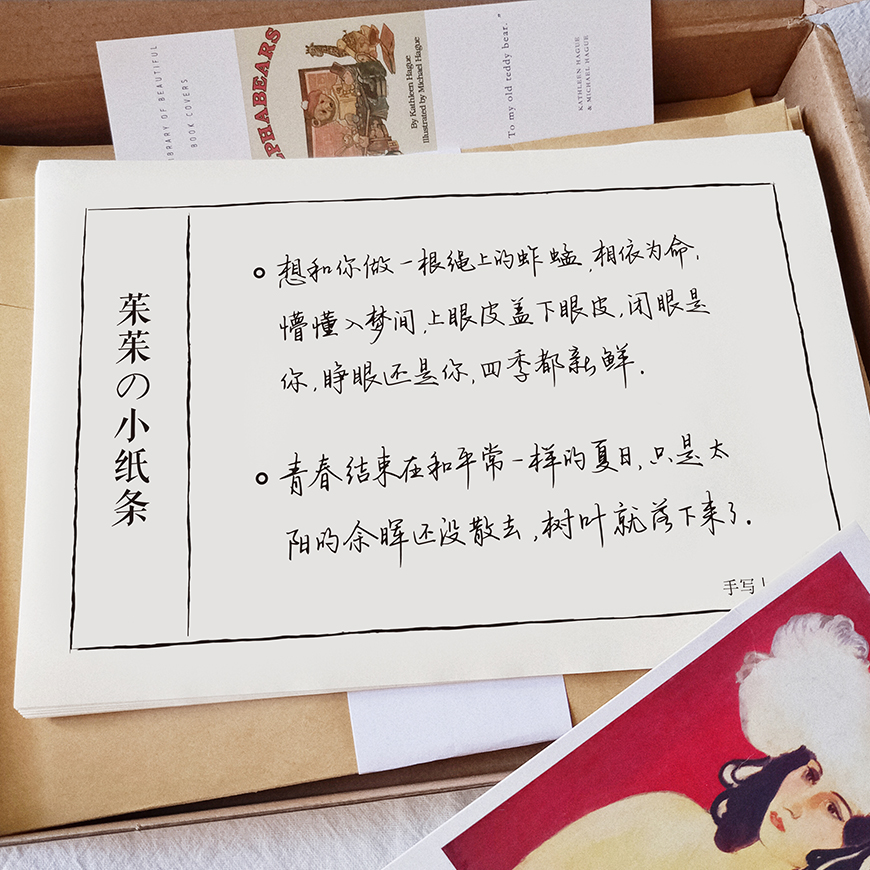 LIBRARY OF BEAUTIFUL
BOOK COVERS
ALPHABEARS
By Kathleen Hague
Illustrated by Michael Hague
"To my old teddy bear."
KATHLEEN HAGUE
& MICHAEL HAGUE
茱茱の小纸条
想和你做一根绳上的蚱蜢,相依为命,
懵懂入梦间,上眼皮盖下眼皮,闭眼是
你,睁眼还是你,四季都新鲜.
青春结束在和平常一样的夏日,只是太
阳的余晖还没散去,树叶就落下来了.
手写